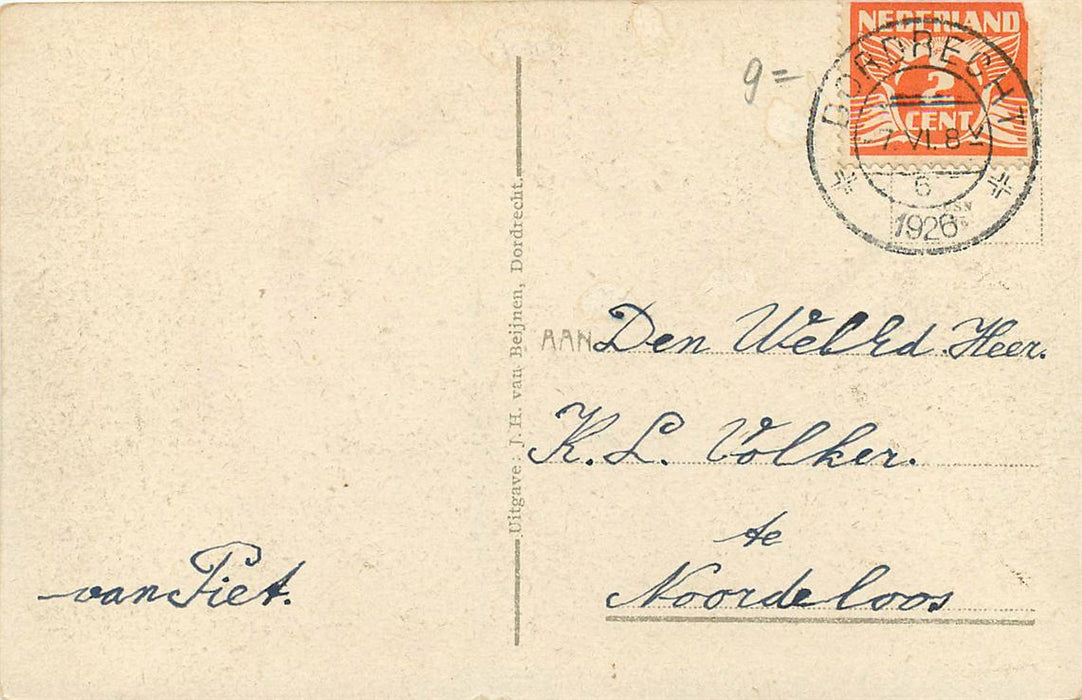 NEDERLAND
2
CENT
DORDRECHT
7.VI.8
6
1926
9=
Uitgave: J. H. van Beijnen, Dordrecht.
AAN Den WelEd. Heer.
K. L. Volker.
te
Noordeloos
van Piet.